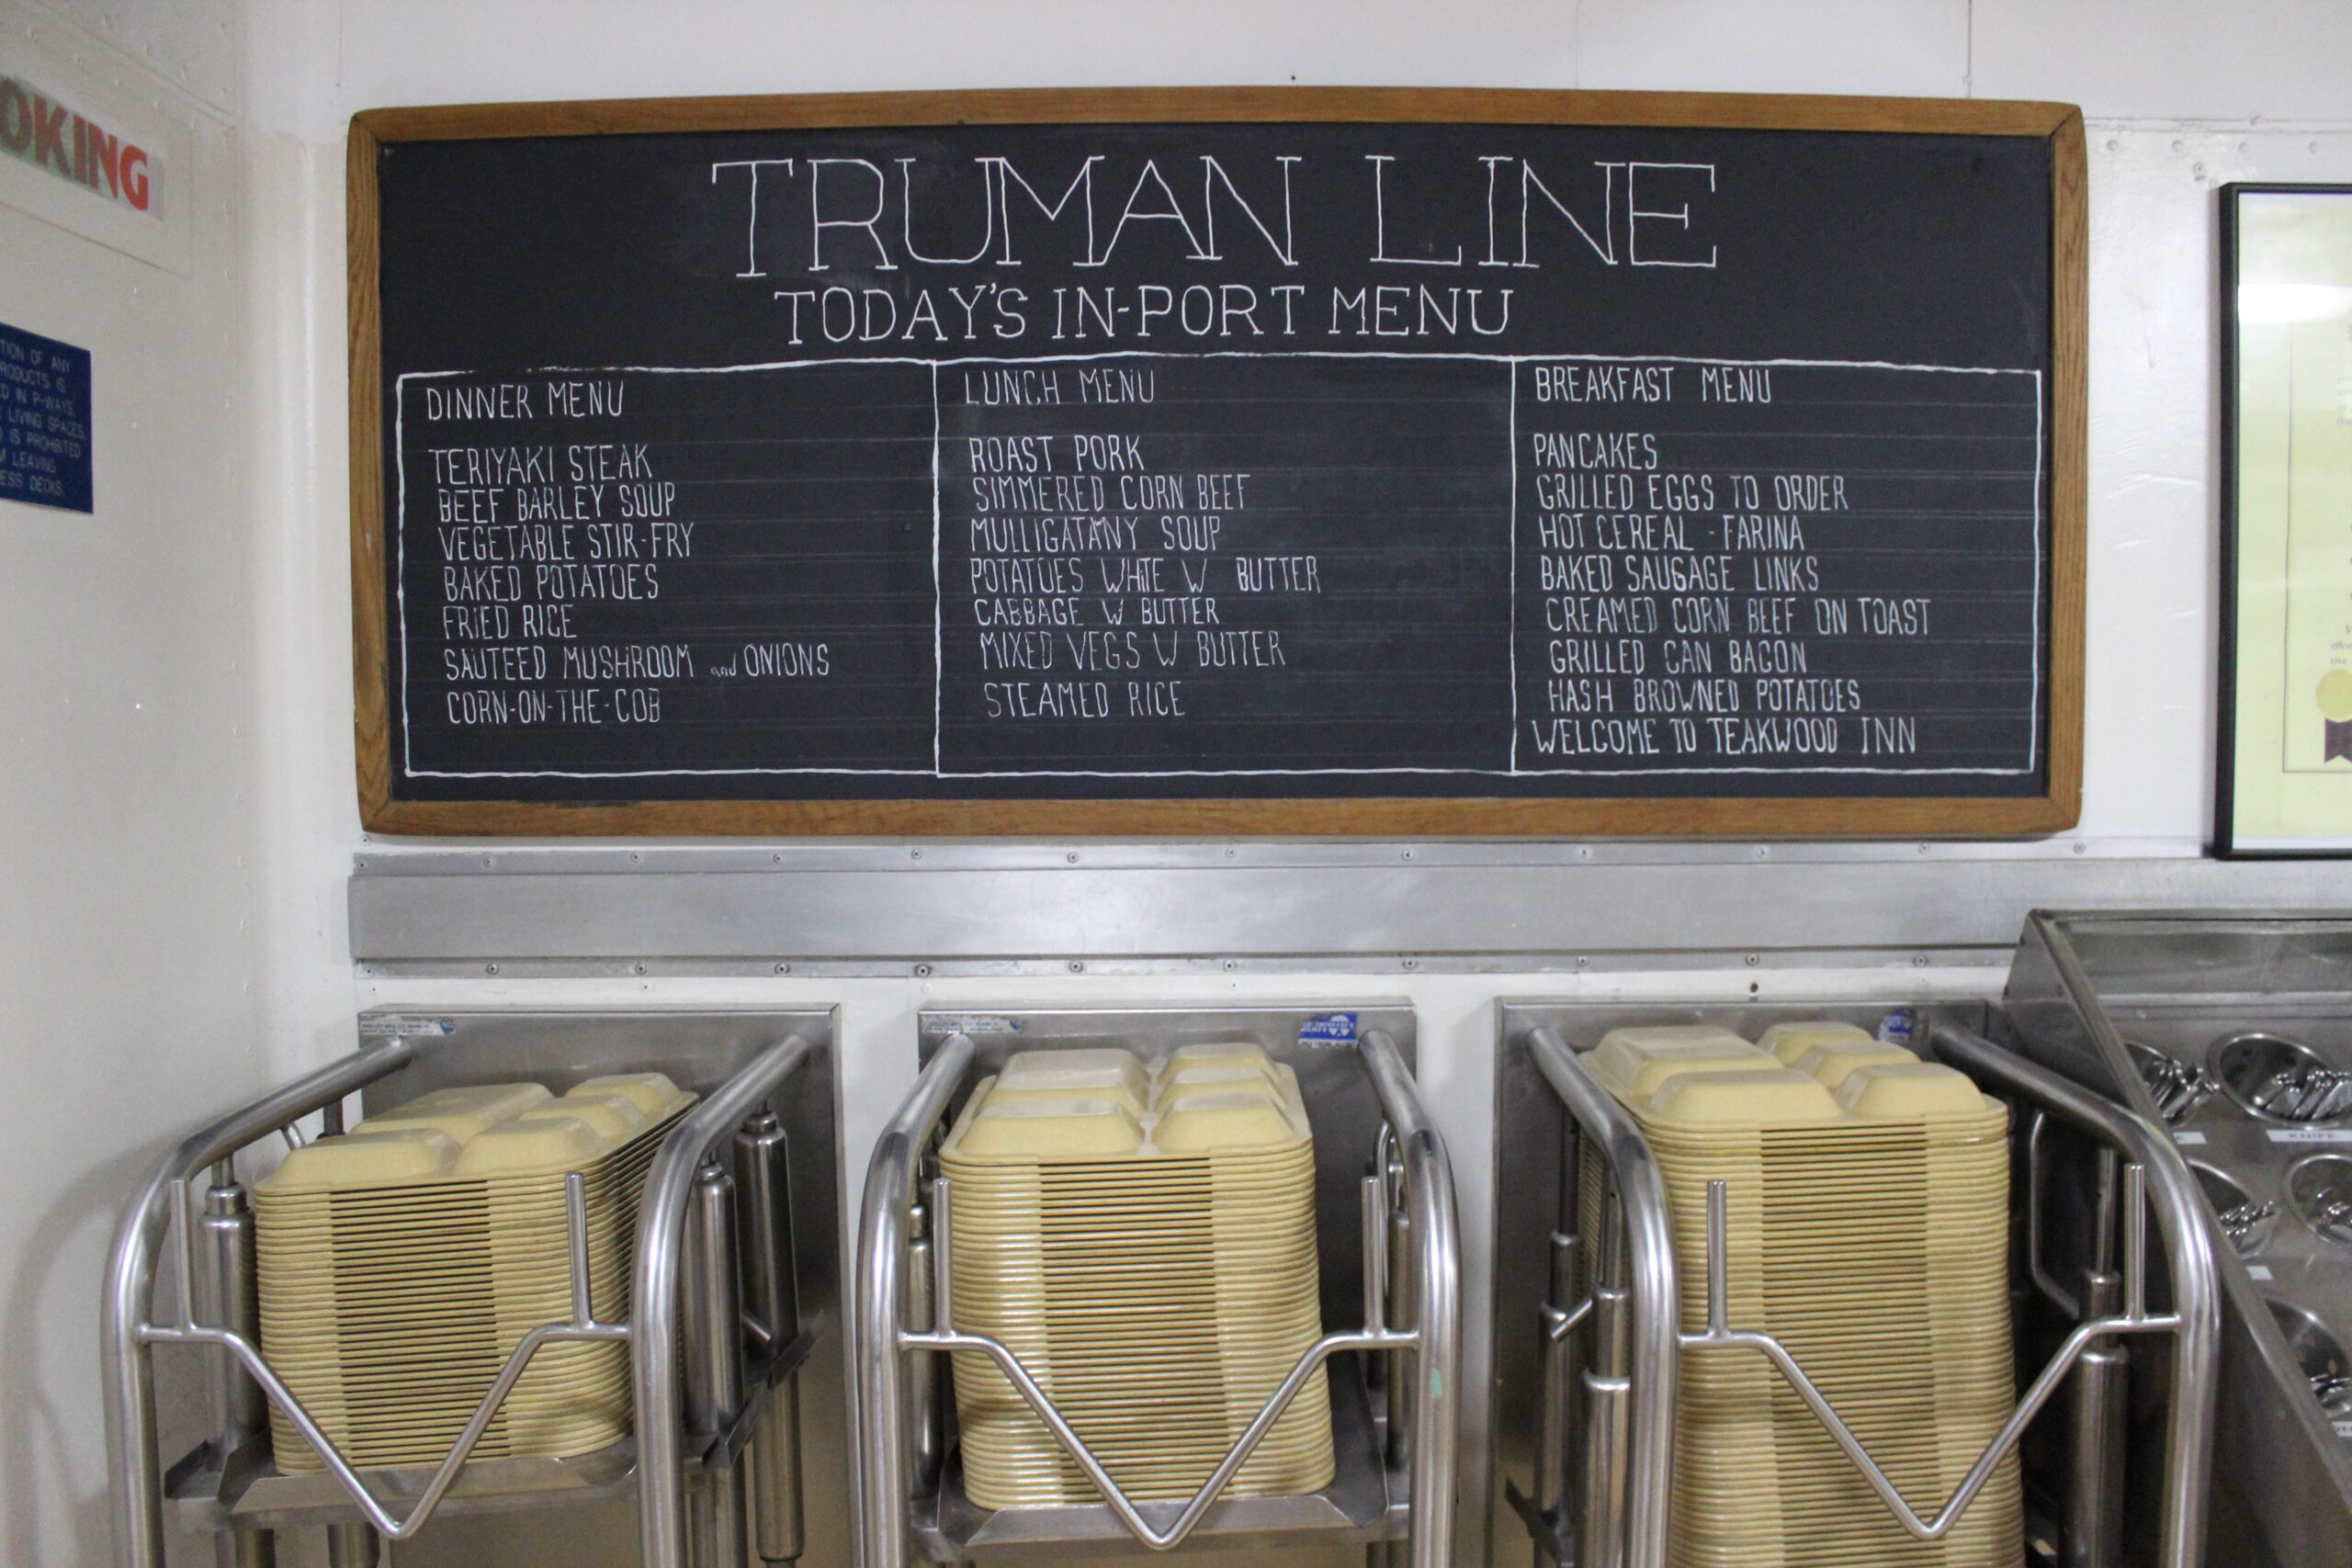 OKING
TION OF ANY
RODUCTS IS
D IN P-WAYS,
LIVING SPACES,
IS PROHIBITED
M LEAVING
ESS DECKS.
TRUMAN LINE
TODAY'S IN-PORT MENU
DINNER MENU
TERIYAKI STEAK
BEEF BARLEY SOUP
VEGETABLE STIR-FRY
BAKED POTATOES
FRIED RICE
SAUTEED MUSHROOM and ONIONS
CORN-ON-THE-COB
LUNCH MENU
ROAST PORK
SIMMERED CORN BEEF
MULLIGATANY SOUP
POTATOES WHITE W BUTTER
CABBAGE W BUTTER
MIXED VEGS W BUTTER
STEAMED RICE
BREAKFAST MENU
PANCAKES
GRILLED EGGS TO ORDER
HOT CEREAL - FARINA
BAKED SAUSAGE LINKS
CREAMED CORN BEEF ON TOAST
GRILLED CAN BACON
HASH BROWNED POTATOES
WELCOME TO TEAKWOOD INN
KNIFE